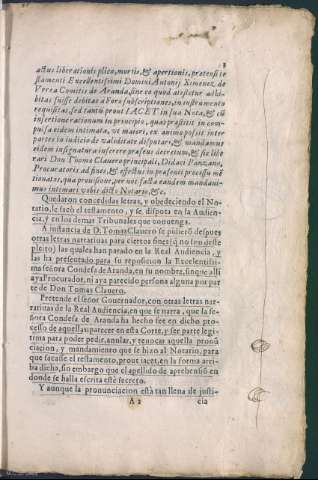 3
actus liberationis plico, mortis, & apertionis, pretensi te
stamenti Excellentissimi Domini Antonij Ximenez de
Vrrea Comitis de Aranda, sine eo quod atestetur adhi-
bitas fuisse debitas à Foro subscriptiones, in instrumento
requisitas, sed tantū prout IACET in sua Nota, & cū
insertione rationum in principio, quas præstitit in com-
pulsa eidem intimata, vt maiori, ex animo possit inter
partes in iudicio de validitate disputari, & mandamus
eidem in signatura inserere præsens decretum, & sic libe
rari Don Thoma Clauero principali, Didaci Panzano,
Procuratoris ad fines, & efectus in præsenti processu mē
tionatos, qua prouisione, per nos facta eandem mandaui-
mus intimari vobis dicto Notario, &c.
Quedaron concedidas letras, y obedeciendo el No-
tario, le sacò el testamento, y se disputa en la Audien-
cia, y en los demas Tribunales que conuenga.
A instancia de D. Tomas Clauero se pidierō despues
otras letras narratiuas para ciertos fines (q̄ no son deste
pleito) las quales han parado en la Real Audiencia, y
las ha presentado para su reposicion la Excelentissi-
ma señora Condesa de Aranda, en su nombre, sin que alli
aya Procurador, ni aya parecido persona alguna por par
te de Don Tomas Clauero.
Pretende el señor Gouernador, con otras letras nar-
ratiuas de la Real Audiencia, en que se narra, que la se-
ñora Condesa de Aranda ha hecho fee en dicho pro-
cesso de aquellas; parecer en esta Corte, y ser parte legi-
tima para poder pedir, anular, y reuocar aquella pronū
ciacion, y mandamiento que se hizo al Notario, para
que sacasse el testamento, prout iacet, en la forma arri-
ba dicha, sin embargo que el apellido de aprehension en
donde se halla escrita està secreto.
Y aunque la pronunciacion està tan llena de justi-
A 2 cia